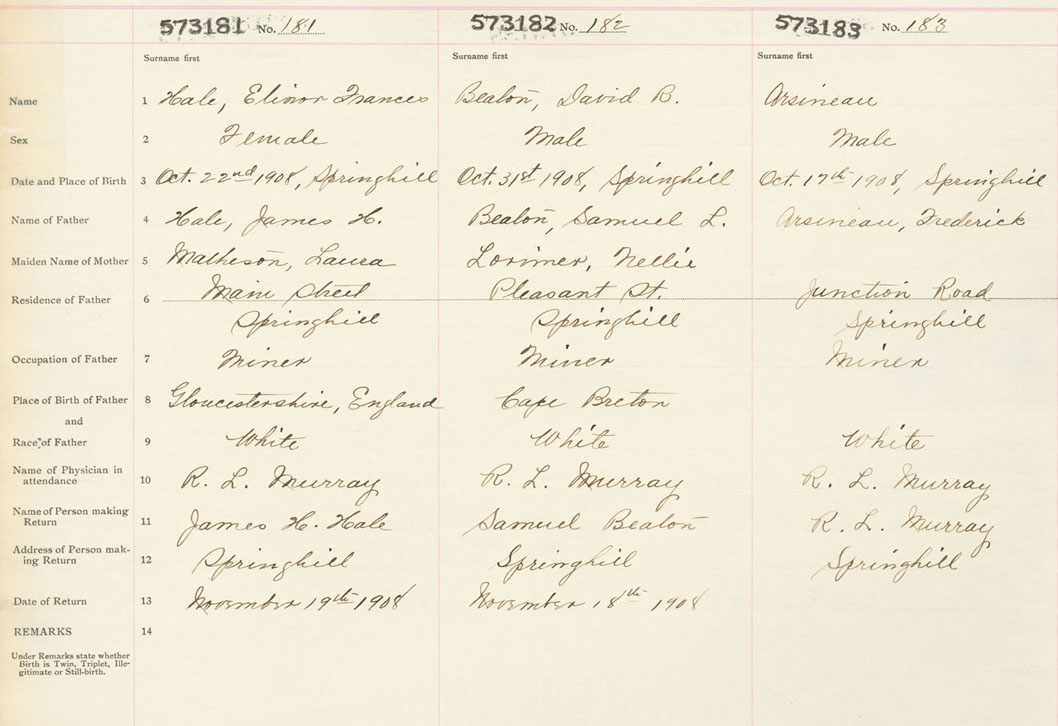 573181 No. 181 573182 No. 182 573183 No. 183
Surname first Surname first Surname first
Name 1 Hale, Elinor Frances Beaton, David B. Arsineau
Sex 2 Female Male Male
Date and Place of Birth 3 Oct. 22nd 1908, Springhill Oct. 31st 1908, Springhill Oct. 17th 1908, Springhill
Name of Father 4 Hale, James H. Beaton, Samuel L. Arsineau, Frederick
Maiden Name of Mother 5 Matheson, Laura Lorimer, Nellie
Residence of Father 6 Main Street Pleasant St. Junction Road
Springhill Springhill Springhill
Occupation of Father 7 Miner Miner Miner
Place of Birth of Father 8 Gloucestershire, England Cape Breton
and
Race of Father 9 White White White
Name of Physician in
attendance 10 R. L. Murray R. L. Murray R. L. Murray
Name of Person making
Return 11 James H. Hale Samuel Beaton R. L. Murray
Address of Person mak-
ing Return 12 Springhill Springhill Springhill
Date of Return 13 November 19th 1908 November 18th 1908
REMARKS 14
Under Remarks state whether
Birth is Twin, Triplet, Ille-
gitimate or Still-birth.